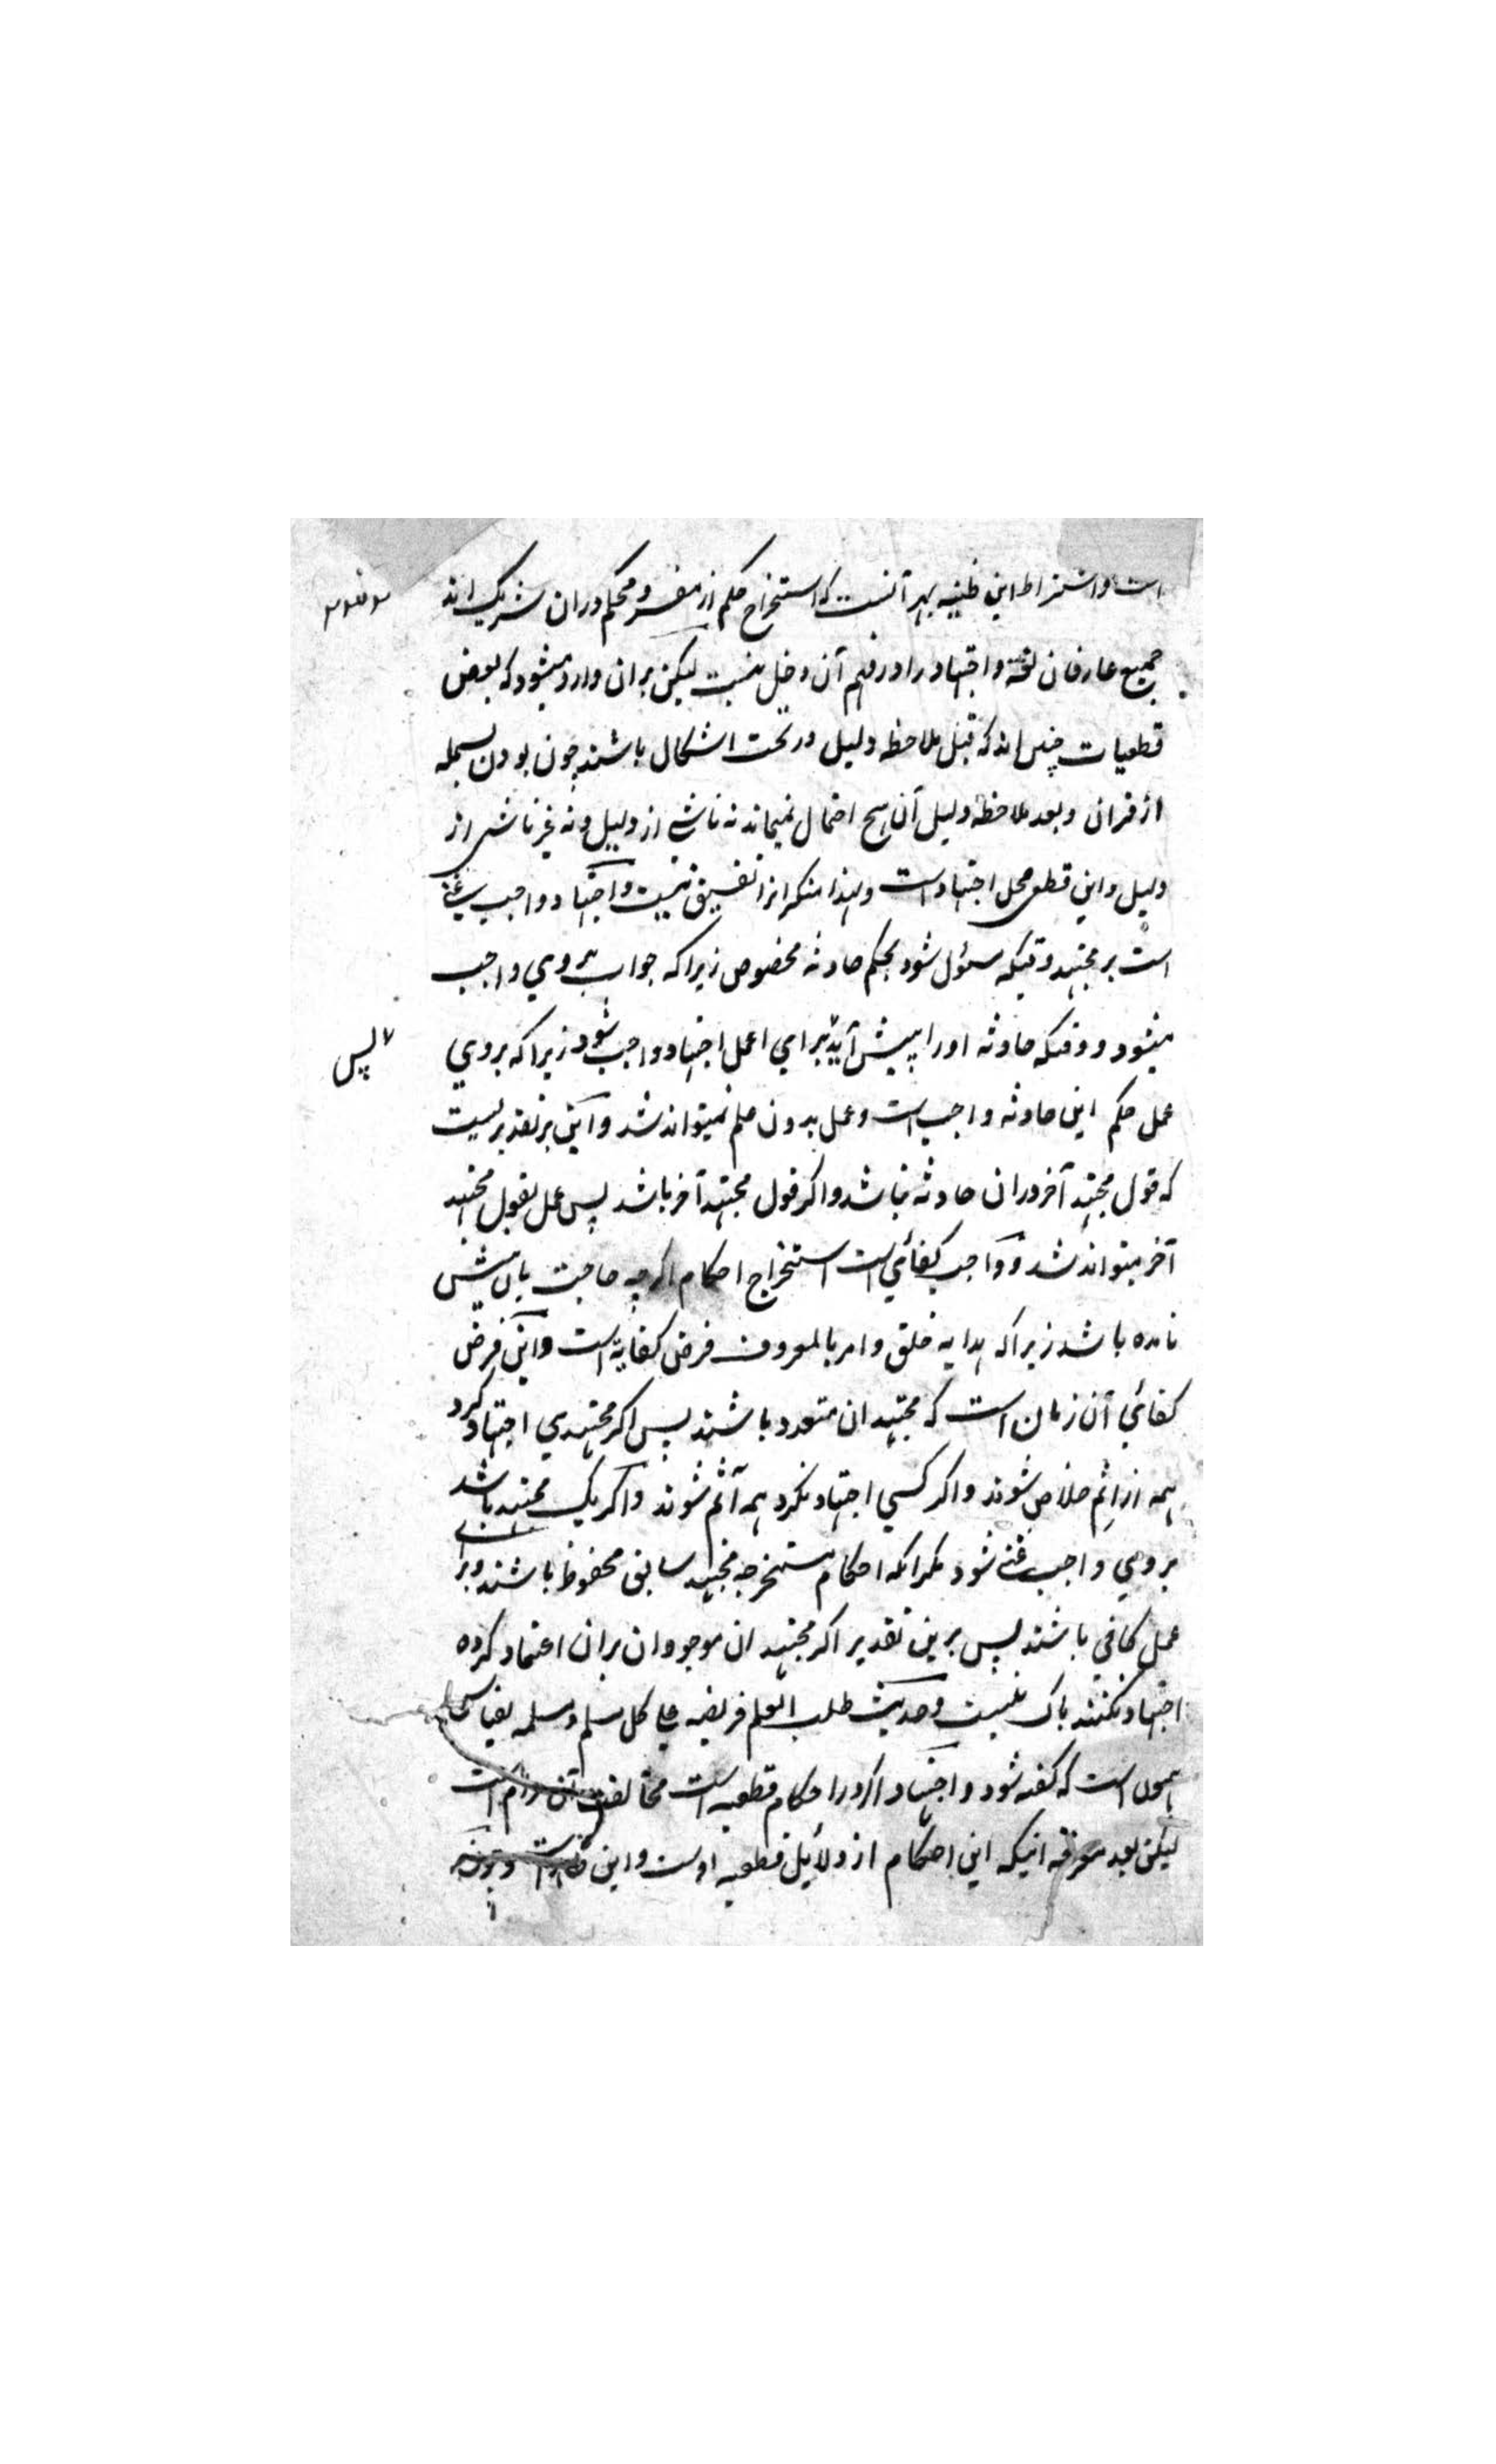 است و اشتراط این ظنیه بهر آنست که استخراج حکم از مفسر و محکم دران شریک اند
جمیع عارفان لغة و اجتهاد را در فهم آن دخل نیست لیکن بران وارد میشود که بعض
قطعیات چنین اند که قبل ملاحظه دلیل در تحت اشکال باشند چون بودن بسمله
از قران و بعد ملاحظه دلیل آن هیچ احتمال نمیماند نه ناشی از دلیل و نه غیر ناشی از
دلیل و این قطعی محل اجتهاد است و لهذا منکر انرا تفسیق نیست و اجتهاد واجب عینی
است بر مجتهد وقتیکه مسؤل شود بحکم حادثه مخصوص زیرا که جواب بروی واجب
میشود و وقتیکه حادثه اورا پیش آید برای عمل اجتهاد واجب شود زیرا که بروی
پس
عمل حکم این حادثه واجب است و عمل بدون علم نمیتواند شد و این بر تقدیریست
که قول مجتهد آخر دران حادثه نباشد و اکر قول مجتهد آخر باشد پس عمل بقول مجتهد
آخر میتواند شد و واجب کفائی است استخراج احکام اکرچه حاجت بان پیش
نامده باشد زیرا که هدایه خلق و امر بالمعروف فرض کفایة است و این فرض
کفائی آن زمان است که مجتهدان متعدد باشند پس اکر مجتهدی اجتهاد کرد
همه از اثم خلاص شوند و اکر کسی اجتهاد نکرد همه آثم شوند و اکر یک مجتهد باشد
بروی واجب عینی شود مکر انکه احکام مستخرجه مجتهد سابق محفوظ باشند و برای
عمل کافی باشند پس برین تقدیر اکر مجتهدان موجودان بران اعتماد کرده
اجتهاد نکنند باک نیست و حدیث طلب العلم فریضه علی کل مسلم و مسلمه
است که کفته شود و اجتهاد اکر در احکام قطعیه است مخالفت آن حرام است
لیکن بعد معرفه اینکه این احکام از دلائل قطعیه اوست و این